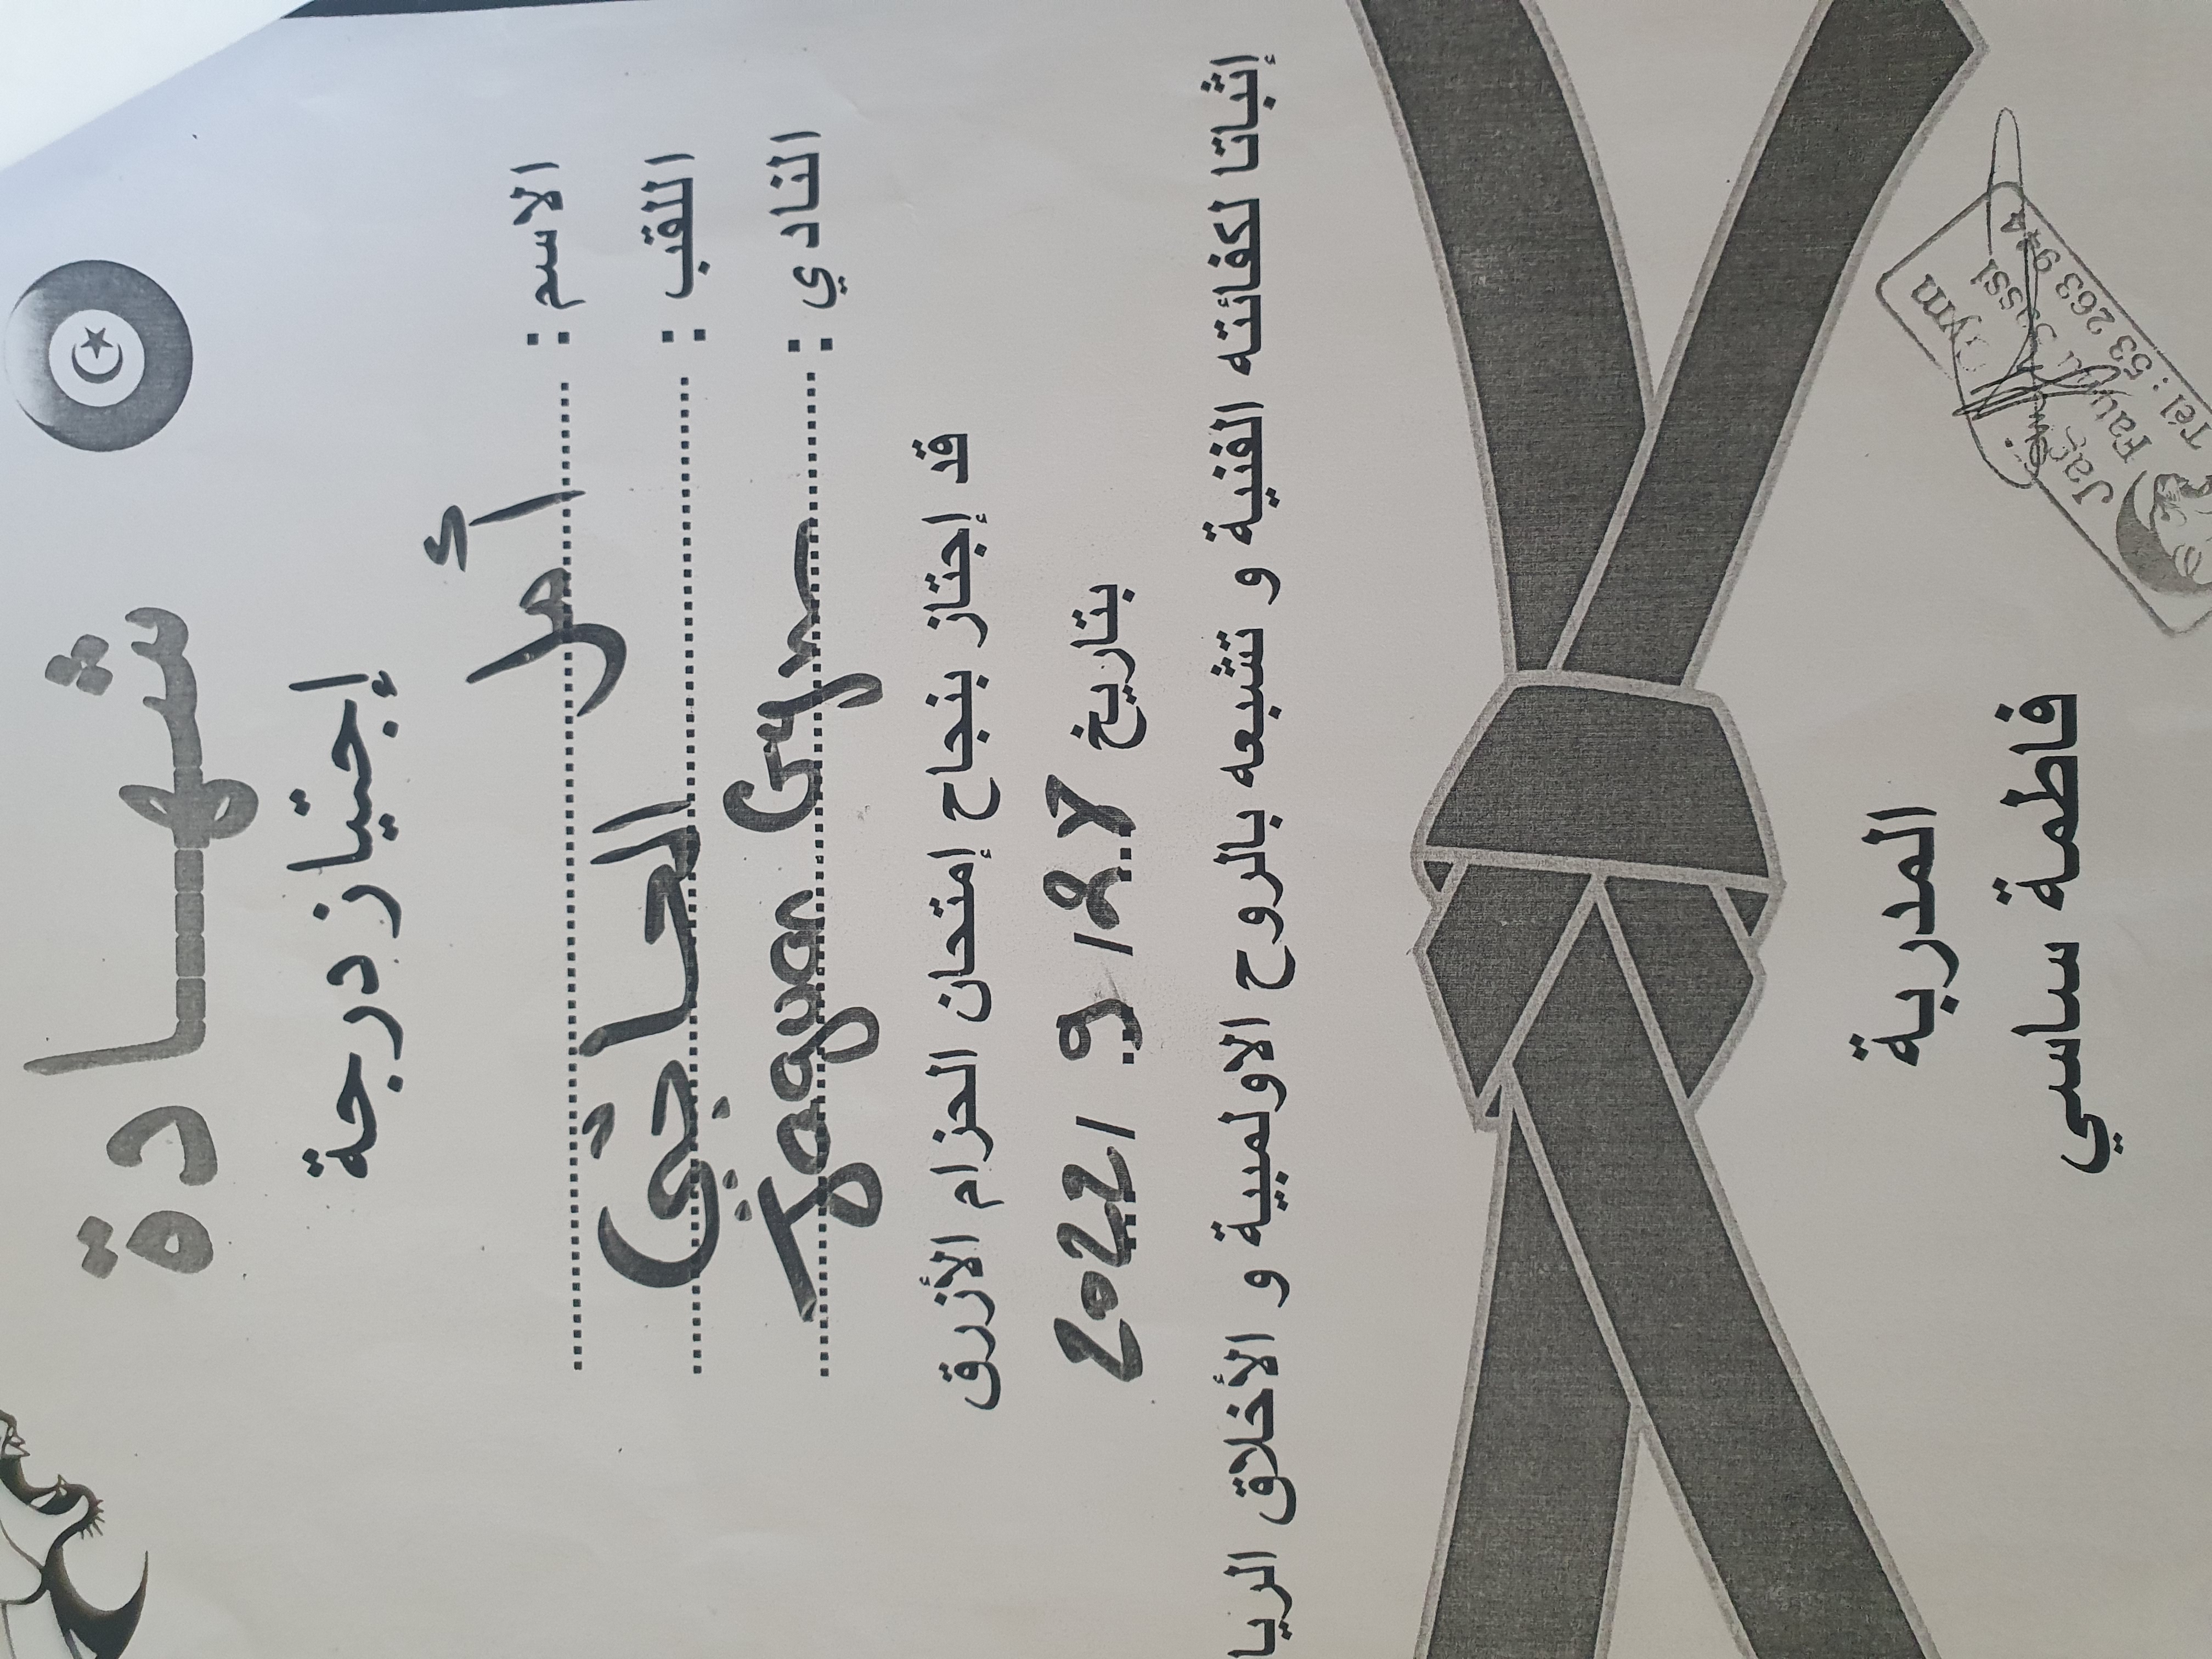 شهادة
إجتياز درجة
الاسم : أمل
اللقب : الحاجّي
النادي : Jaguar Gym
قد إجتاز بنجاح إمتحان الحزام الأزرق
بتاريخ 2022/ 9 /
إثباتا لكفائته الفنية و تشبعه بالروح الاولمبية و الأخلاق الريا
المدربة
فاطمة ساسي
Gym
Sassi
Tél : 53 263 944